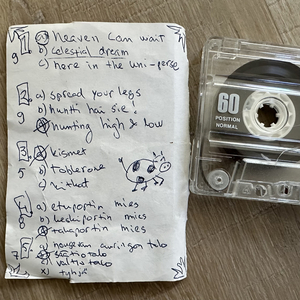 1. a) Heaven Can wait
9 b) celestial dream
c) here in the uni-perse
2. a) spread your legs
9 b) huhti hai sie!
hunting high & low
3. kismet
5 b) toblerone
4. a) etuportin mies
8 b) keskiportin mies
takaportin mies
5.
7 säätiö talo
c) valtio talo
x) tyhjä
60
POSITION
NORMAL